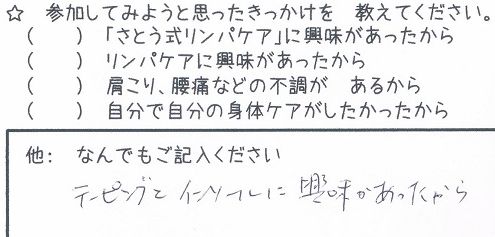 ☆ 参加してみようと思ったきっかけを 教えてください。
( ) 「さとう式リンパケア」に興味があったから
( ) リンパケアに興味があったから
( ) 肩こり、腰痛などの不調が あるから
( ) 自分で自分の身体ケアがしたかったから
他: なんでもご記入ください
テーピングと インソールに 興味があったから